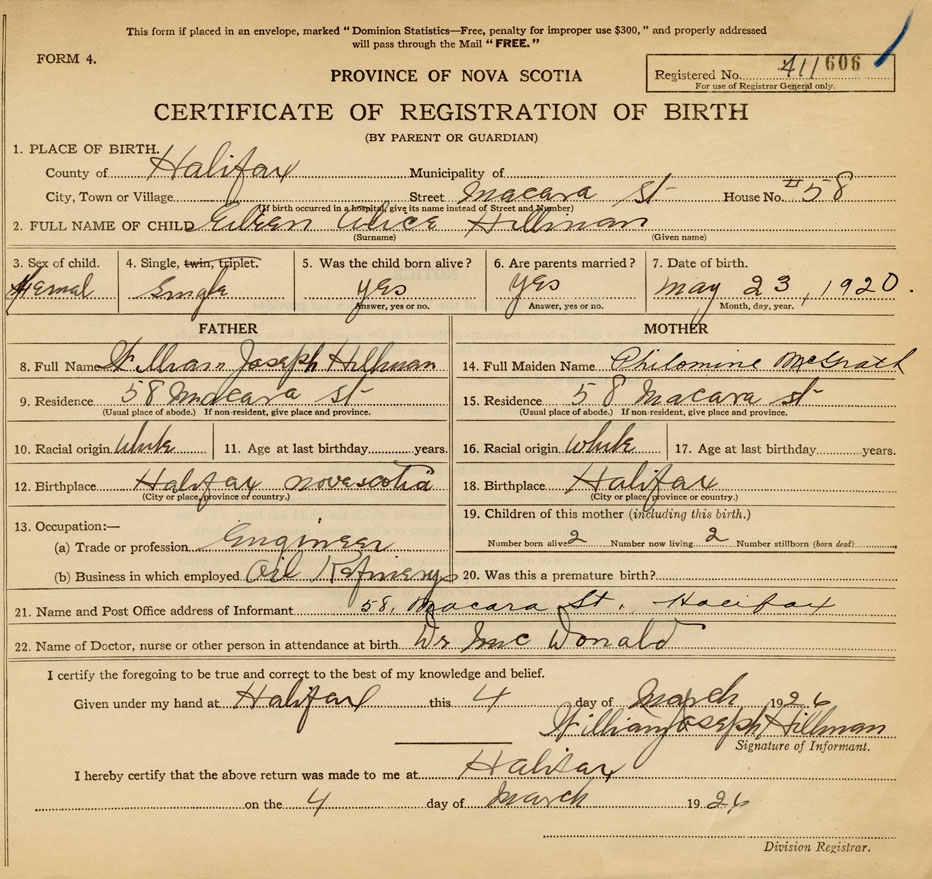 This form if placed in an envelope, marked "Dominion Statistics—Free, penalty for improper use $300," and properly addressed
will pass through the Mail "FREE."
FORM 4.
PROVINCE OF NOVA SCOTIA
Registered No. 411606
For use of Registrar General only.
CERTIFICATE OF REGISTRATION OF BIRTH
(BY PARENT OR GUARDIAN)
1. PLACE OF BIRTH.
County of Halifax Municipality of
City, Town or Village Street Macara St House No. #58
(If birth occurred in a hospital, give its name instead of Street and Number)
2. FULL NAME OF CHILD Eileen Alice Hillman
(Surname) (Given name)
3. Sex of child. 4. Single, twin, triplet. 5. Was the child born alive? 6. Are parents married? 7. Date of birth.
Femal Single yes yes May 23, 1920.
Answer, yes or no. Answer, yes or no. Month, day, year.
FATHER MOTHER
8. Full Name William Joseph Hillman 14. Full Maiden Name Philomine McGrath
9. Residence 58 Macara st 15. Residence 58 Macara st
(Usual place of abode.) If non-resident, give place and province. (Usual place of abode.) If non-resident, give place and province.
10. Racial origin White 11. Age at last birthday years. 16. Racial origin White 17. Age at last birthday years.
12. Birthplace Halifax novascotia 18. Birthplace Halifax
(City or place, province or country.) (City or place, province or country.)
13. Occupation:— 19. Children of this mother (including this birth.)
(a) Trade or profession Engineer Number born alive 2 Number now living 2 Number stillborn (born dead)
(b) Business in which employed Oil Refinerys 20. Was this a premature birth?
21. Name and Post Office address of Informant 58. Macara St. Halifax
22. Name of Doctor, nurse or other person in attendance at birth Dr Mc Donald
I certify the foregoing to be true and correct to the best of my knowledge and belief.
Given under my hand at Halifax this 4 day of March 1926
William Joseph Hillman
Signature of Informant.
I hereby certify that the above return was made to me at Halifax
on the 4 day of March 1926
Division Registrar.